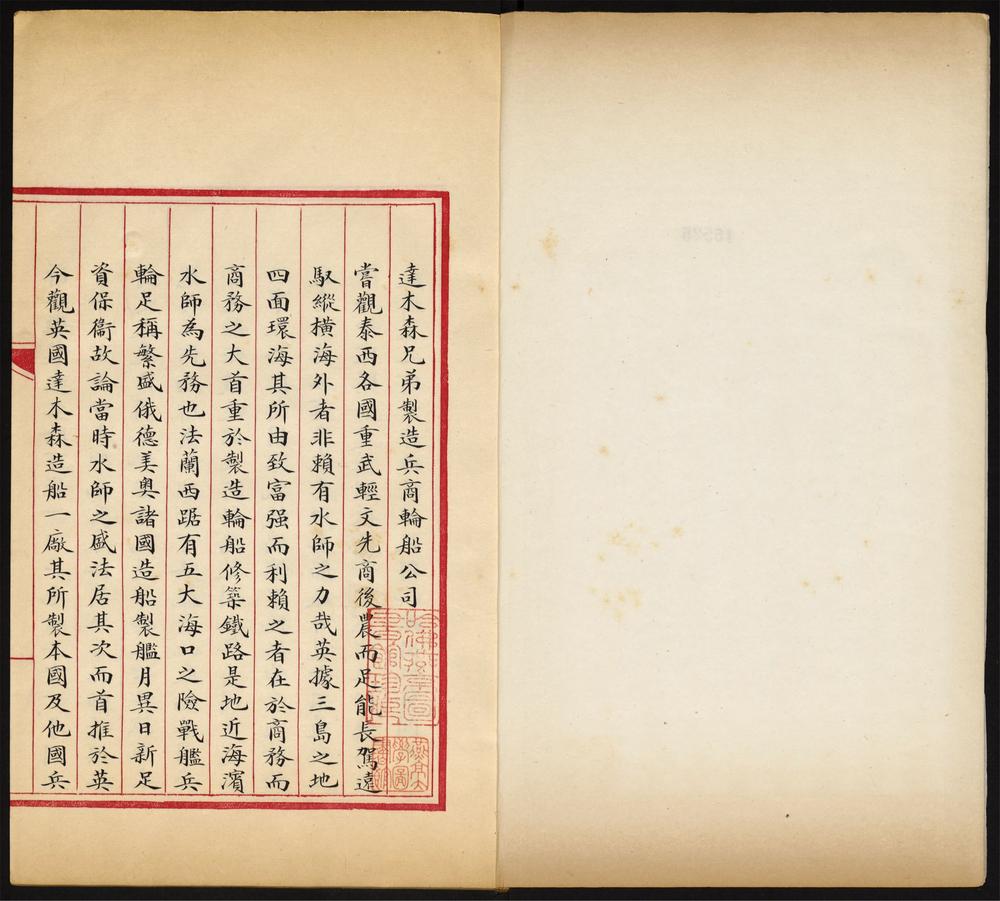 達木森兄弟製造兵商輪船公司
嘗觀泰西各國重武輕文先商後農而足能長駕遠
馭縱橫海外者非賴有水師之力哉英據三島之地
四面環海其所由致富强而利賴之者在於商務而
商務之大首重於製造輪船修築鐵路是地近海濱
水師為先務也法蘭西踞有五大海口之險戰艦兵
輪足稱繁盛俄德美奧諸國造船製艦月異日新足
資保衞故論當時水師之盛法居其次而首推於英
今觀英國達木森造船一廠其所製本國及他國兵
哈佛燕京圖
書館珍藏